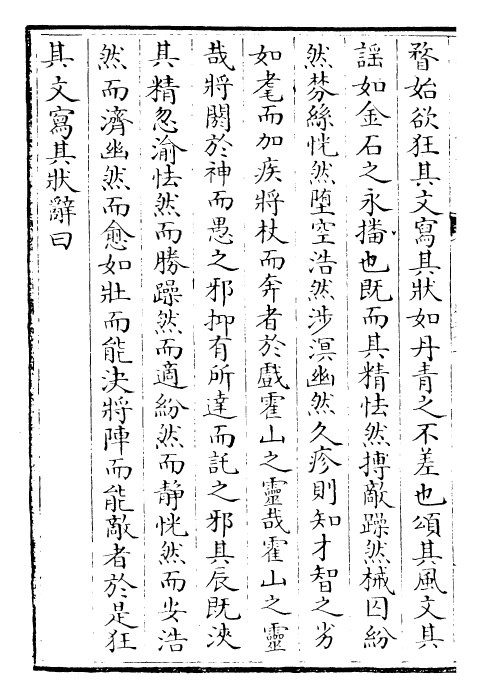 瞀始欲狂其文寫其狀如丹青之不差也頌其風文其
謡如金石之永播也既而其精怯然搏敵躁然械囚紛
然棼絲恍然墮空浩然涉溟幽然久疹則知才智之劣
如耄而加疾將杖而奔者於戲霍山之靈哉霍山之靈
哉將閼於神而愚之邪抑有所達而託之邪其辰既浹
其精忽渝怯然而勝躁然而適紛然而静恍然而安浩
然而濟幽然而愈如壯而能决將陣而能敵者於是狂
其文寫其狀辭曰